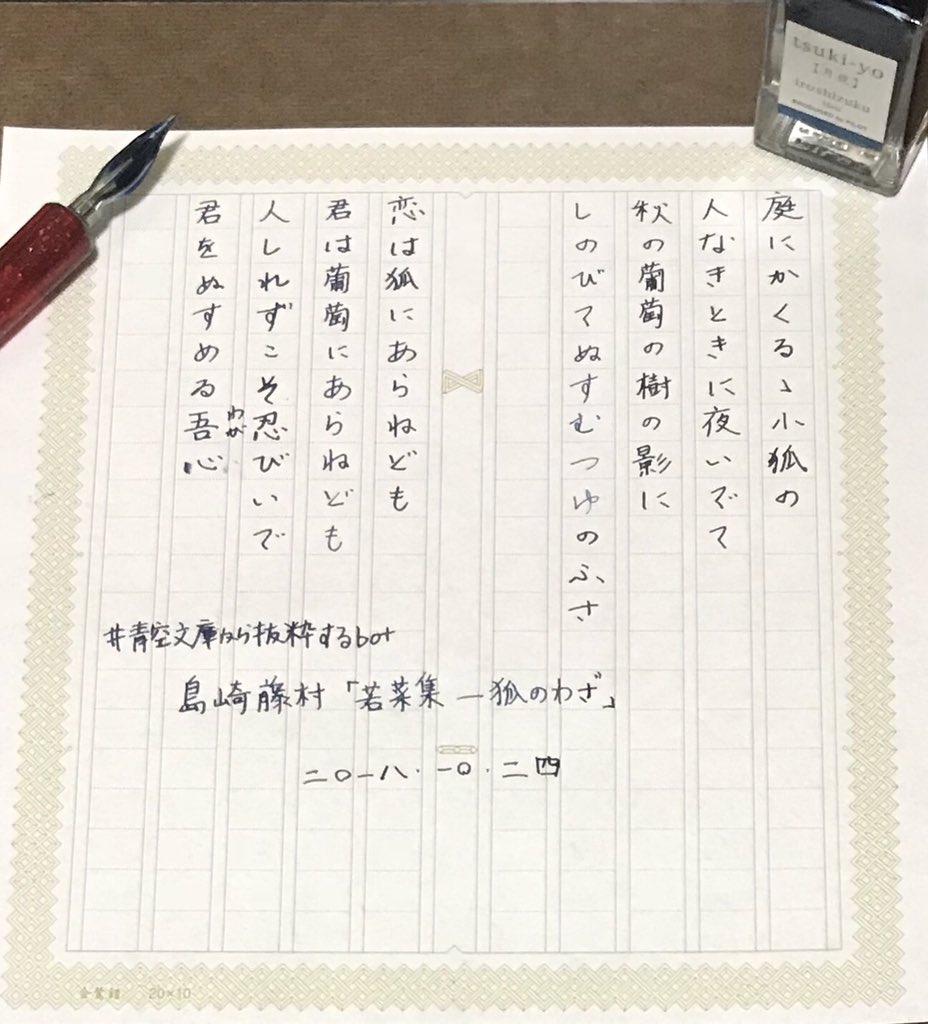 庭にかくるゝ小狐の
人なきときに夜いでて
秋の葡萄の樹の影に
しのびてぬすむつゆのふさ
恋は狐にあらねども
君は葡萄にあらねども
人しれずこそ忍びいで
君をぬすめる吾心
わが
#青空文庫から抜粋するbot
島崎藤村「若菜集―狐のわざ」
二〇一八.一〇.二四
tsuki-yo
【月夜】
iroshizuku
PRODUCED by PILOT
20×10